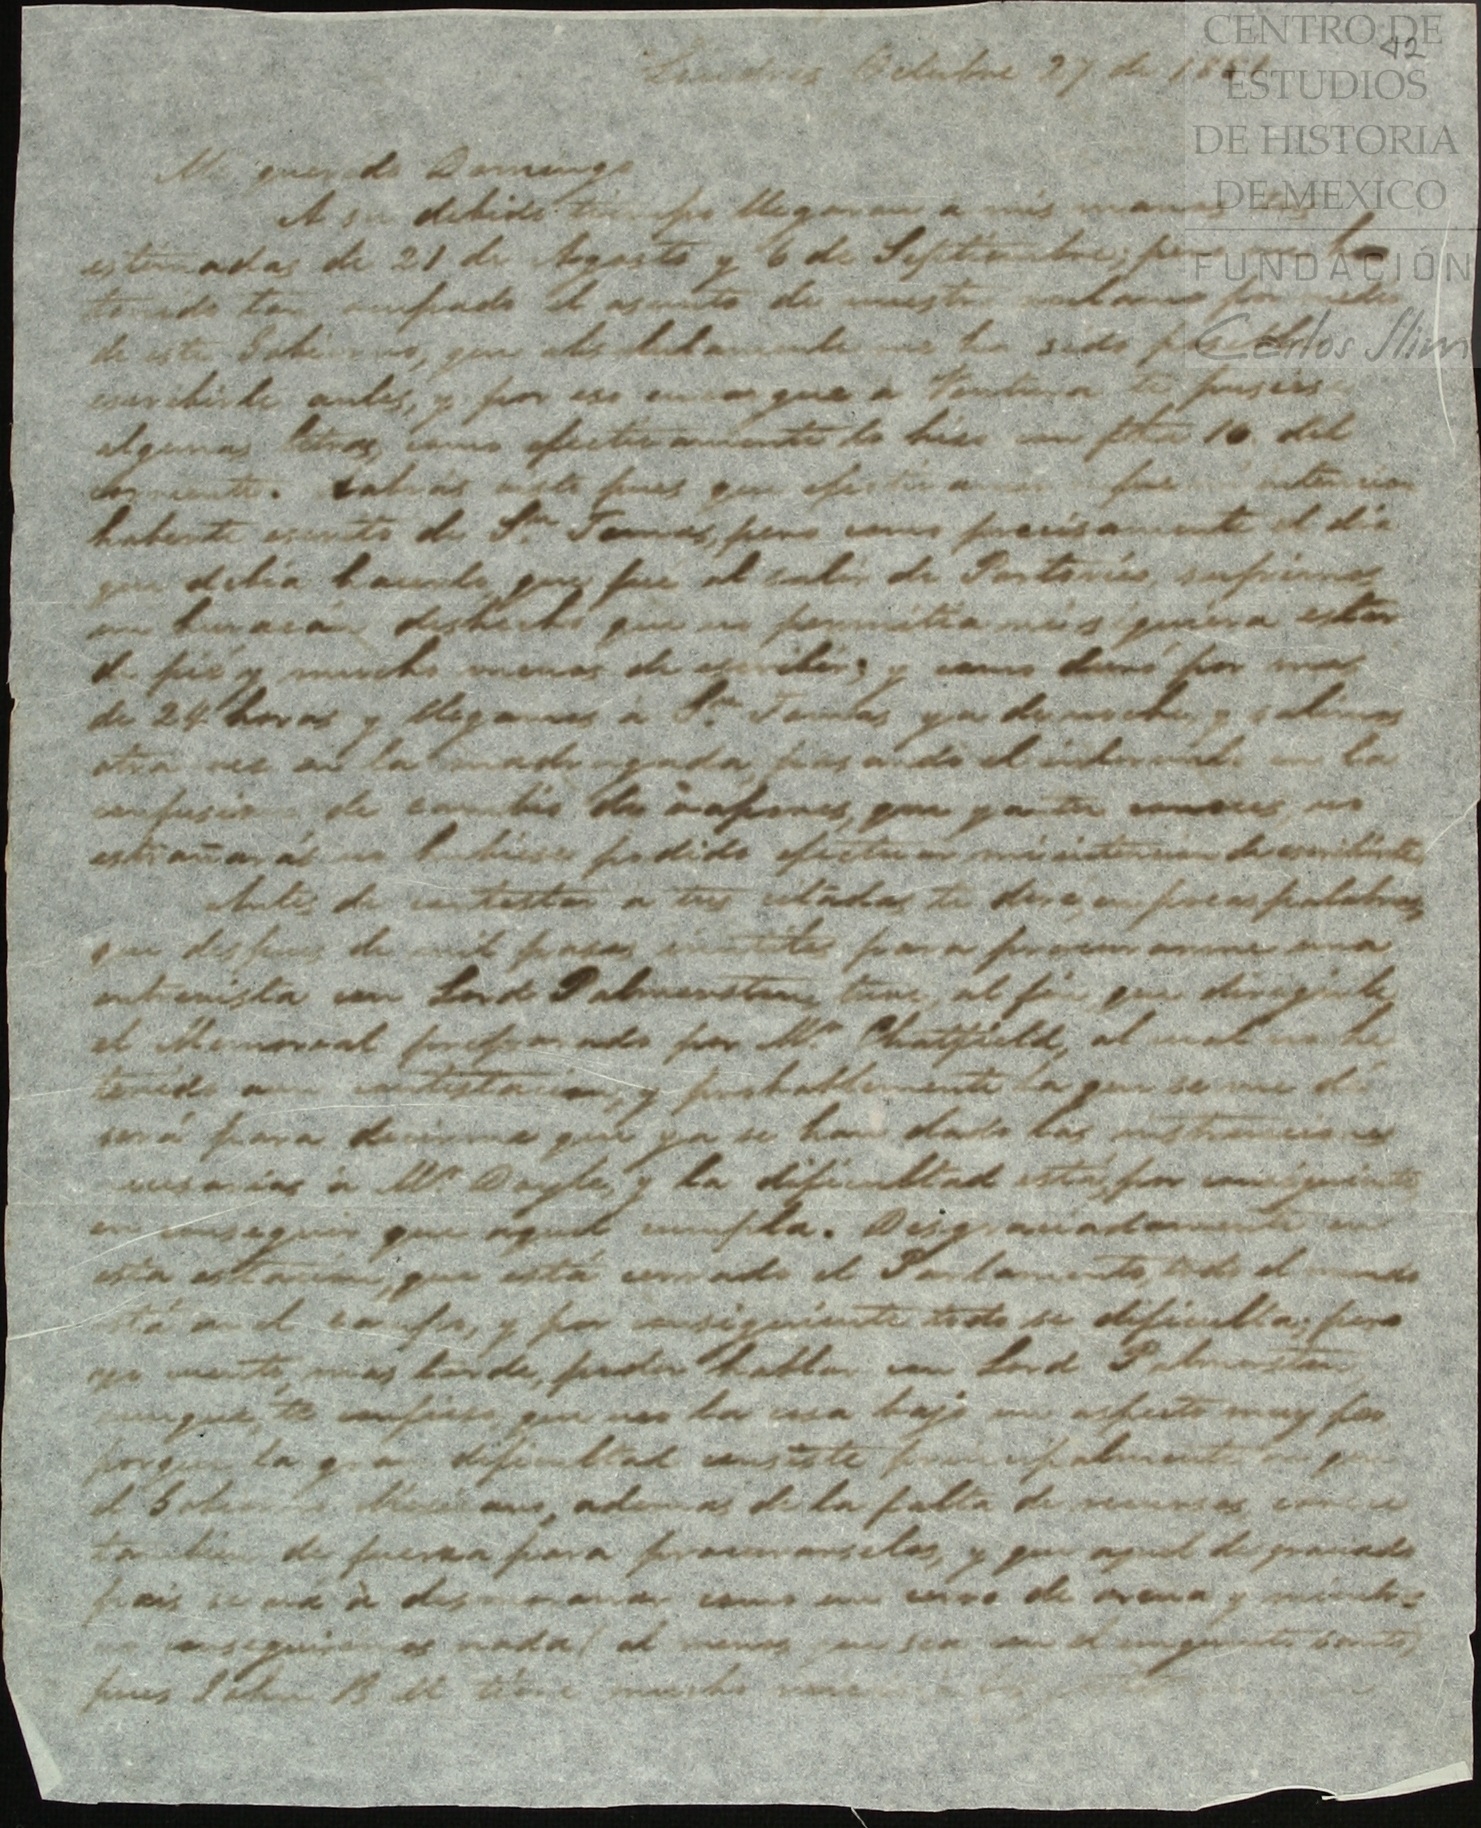 CENTRO DE
ESTUDIOS
DE HISTORIA
DE MEXICO
FUNDACIÓN
Carlos Slim
42
Londres Octubre 27 de 1851
Mi querido Domingo
A su debido tiempo llegaron a mis manos tus
estimadas de 21 de Agosto y 6 de Septiembre; pero me ha
tenido tan ocupado el asunto de nuestro reclamo por medio
de este Gobierno, que absolutamente me ha sido posible
escribirte antes, y por eso encargue a Ventura te pusiese
algunas letras, como efectivamente lo hizo con fha 10 del
corriente. Sabrás pues que fue mi intencion
haberte escrito de Sn. Tomas, pero como precisamente el dia
que debia hacerlo, que fué al salir de Puertorico, sufrimos
un huracán deshecho que no permitia ni siquiera estar
de pié y mucho menos de escribir; y como duró por mas
de 24 horas y llegamos a Sn. Tomas ya de noche, y salimos
otra vez en la madrugada, pasando el intermedio en la
confusion de cambio de vapores, que ya tu conoces, no
estrañarás no hubiese podido efectuar mi intencion de escribirte
Antes de contestar a tus citadas, te diré, en pocas palabras,
que despues de mil pasos inutiles para procurarme una
entrevista con Lord Palmerston, tuve, al fin, que dirigirle
el Memorial preparado por Mr. Chatfield, al cual no he
tenido aun contestacion, y probablemente la que se me dé
será para decirme que ya se han dado las instrucciones
necesarias á Mr. Doyle, y la dificultad está, por consiguiente,
en conseguir que aquel cumpla. Desgraciadamente en
esta estacion, que está cerrado el Parlamento, todo el mundo
está en el campo, y por consiguiente todo se dificulta; pero
yo cuento, mas tarde, poder hablar con Lord Palmerston,
aunque, te confieso, que veo la cosa bajo un aspecto muy feo
porque la gran dificultad consiste principalmente en que
el Gobierno Mexicano, ademas de la falta de recursos, carece
tambien de fuerza para procurarselos, y que aquel desgraciado
pais se va á desmoronar como un cerro de arena y nosotros
no conseguiremos nada (al menos que sea con el unguento santo)
pues John Bull tiene mucho